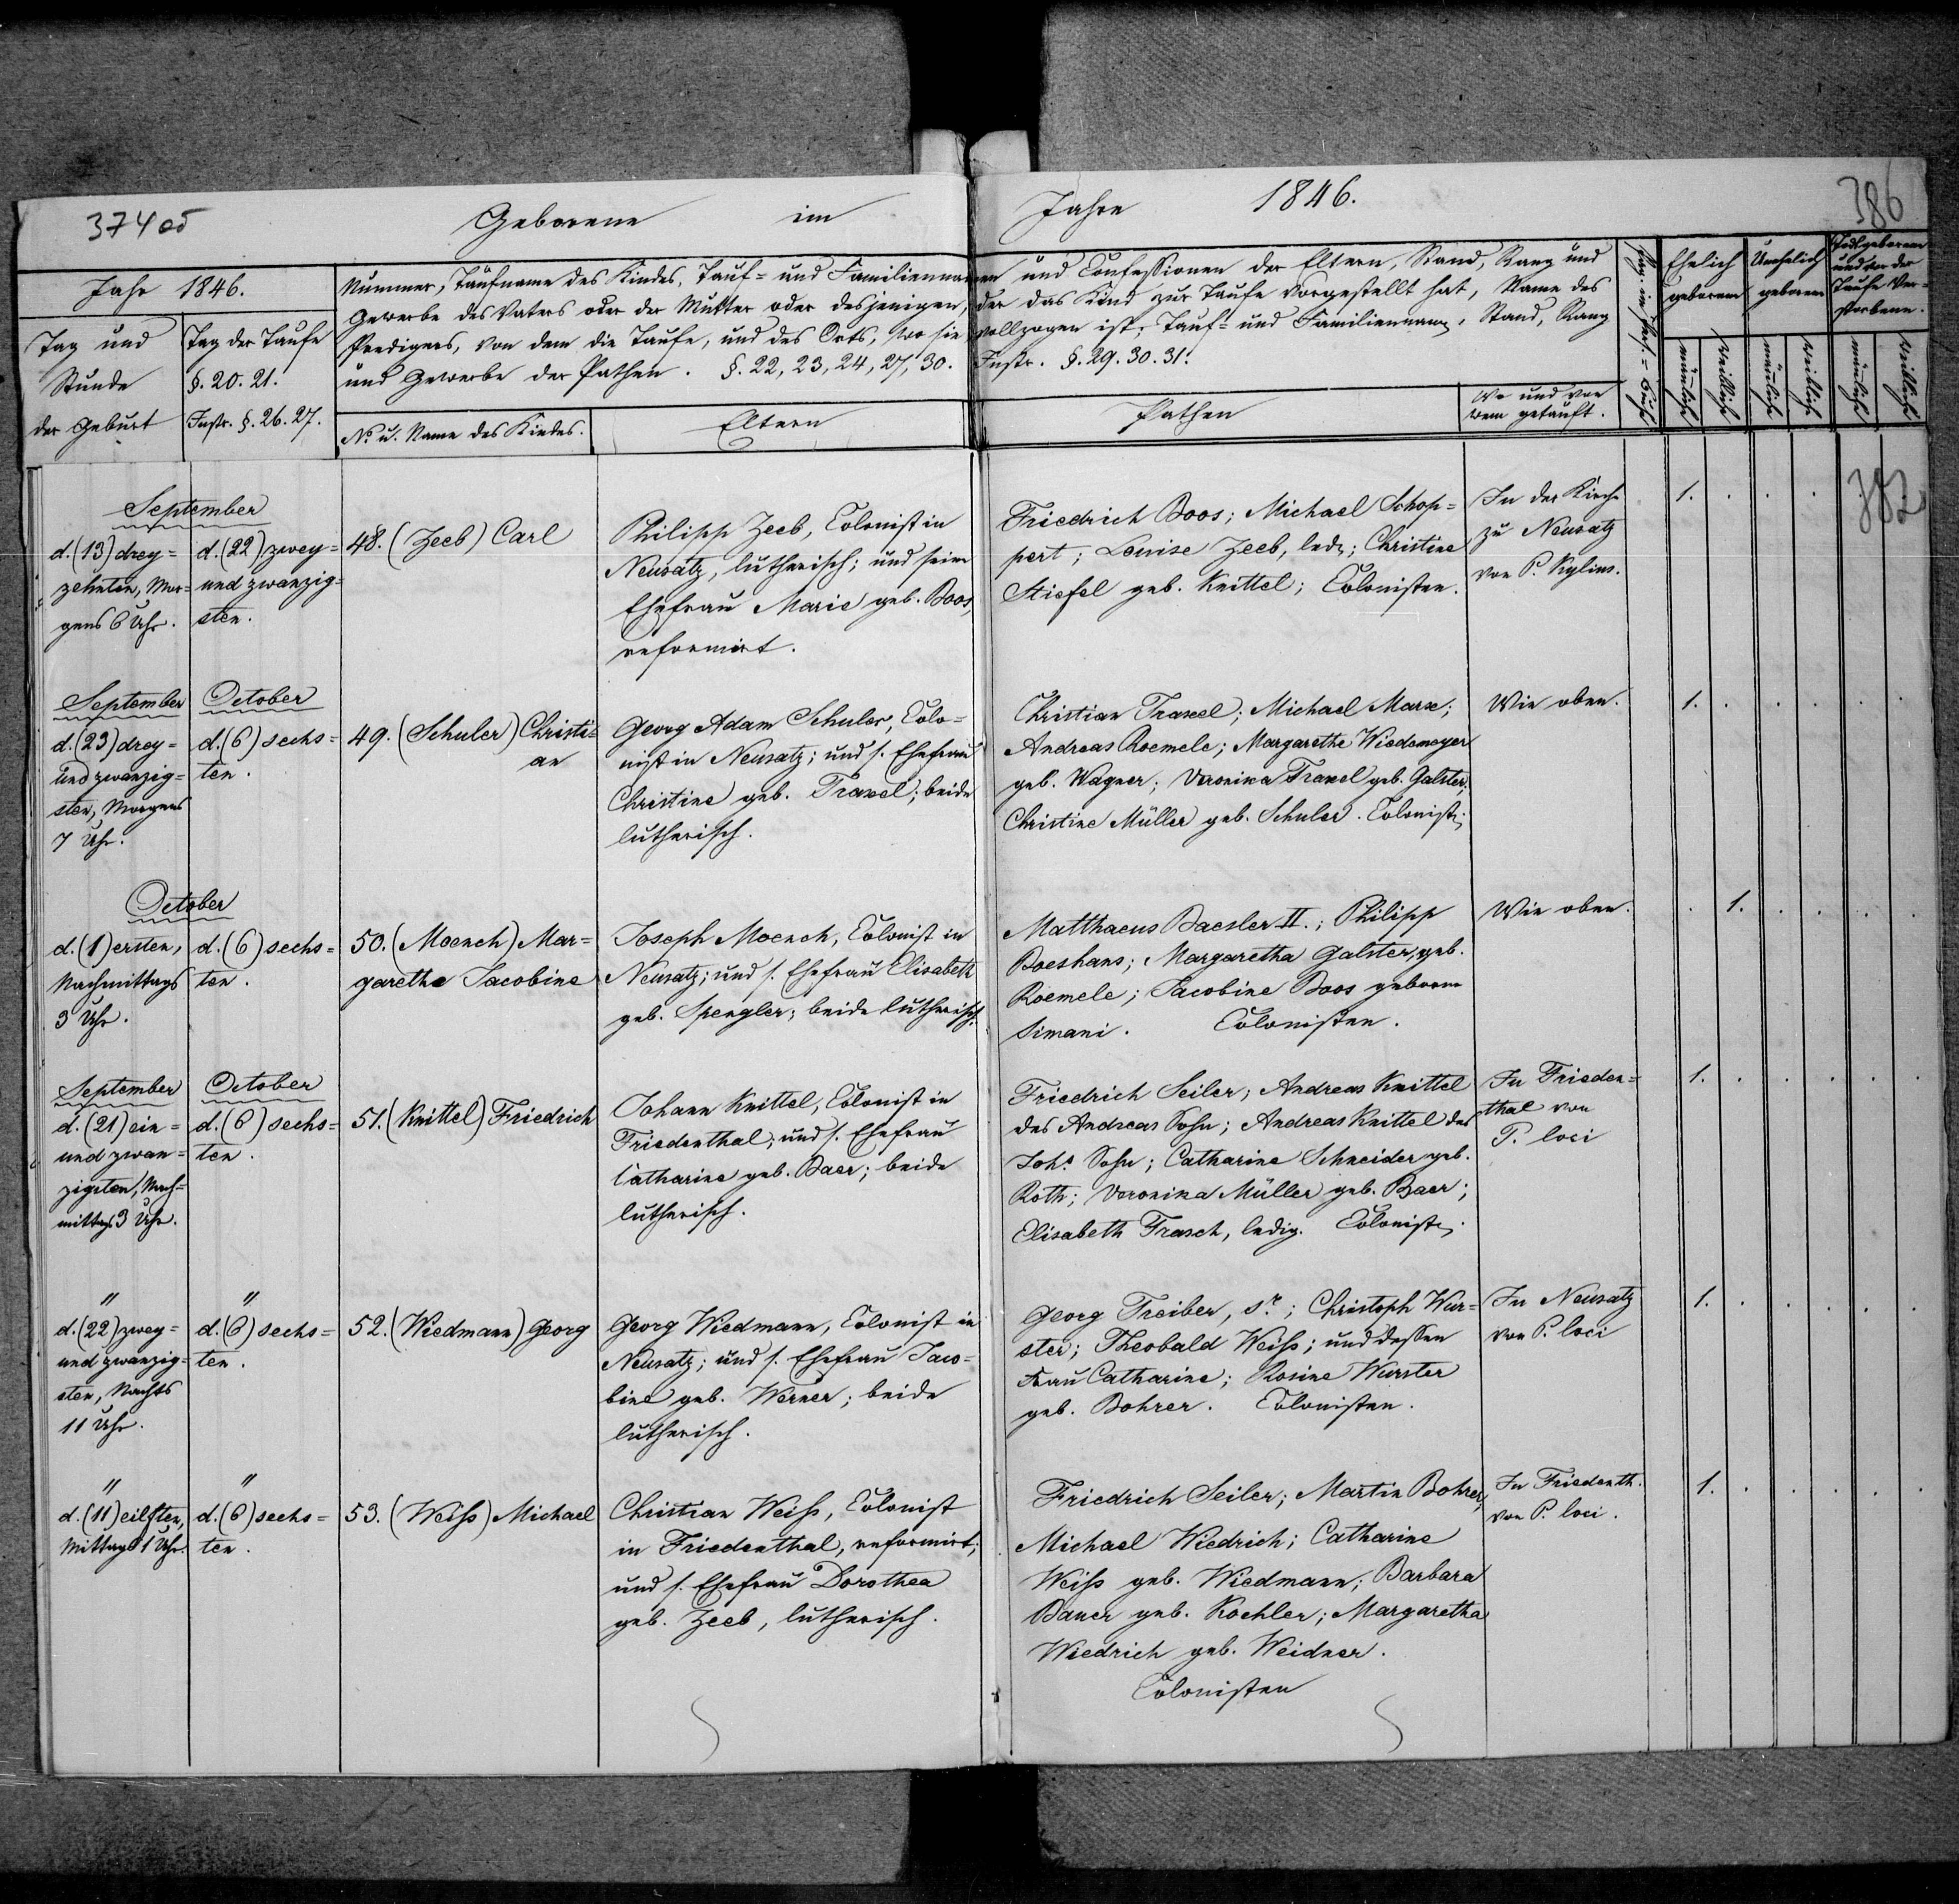 374 об
Geborene im Jahre 1846.
386
Jahr 1846.
Tag und
Stunde
der Geburt
Tag der Taufe
§. 20. 21.
Instr. §. 26. 27.
Nummer, Taufname des Kindes, Tauf= und Familiennamen und Confessionen der Eltern, Stand, Rang und
Gewerbe des Vaters oder der Mutter oder desjenigen, der das Kind zur Taufe vorgestellt hat, Name des
Predigers, von dem die Taufe, und des Orts, wo sie vollzogen ist; Tauf= und Familiennamen, Stand, Rang
und Gewerbe der Pathen. §. 22, 23, 24, 27, 30. Instr. §. 29. 30. 31.
No u. Name des Kindes.
Eltern
Pathen
Wo und von
wem getauft.
Ehelich
geboren
Unehelich
geboren
Todtgeborene
und vor der
Taufe Ver=
storbene.
männlich
weiblich
männlich
weiblich
männlich
weiblich
382
September
d. (13) drey=
zehnten, Mor=
gens 6 Uhr.
d. (22) zwey=
und zwanzig=
sten.
48. (Zeeb) Carl
Philipp Zeeb, Colonist in
Neusatz, lutherisch; und seine
Ehefrau Marie geb. Boos,
reformirt.
Friedrich Boos; Michael Schop=
pert; Louise Zeeb, led.; Christine
Stiefel geb. Knittel; Colonisten.
In der Kirche
zu Neusatz
von P. Kylius.
1.
September
d. (23) drey=
und zwanzig=
sten, Morgens
7 Uhr.
October
d. (6) sechs=
ten.
49. (Schuler) Christi=
an
Georg Adam Schuler, Colo=
nist in Neusatz; und s. Ehefrau
Christine geb. Traxel; beide
lutherisch.
Christian Traxel; Michael Marx;
Andreas Roemele; Margarethe Wiedemeyer
geb. Wagner; Veronika Traxel geb. Galster;
Christine Müller geb. Schuler. Colonist.
Wie oben.
1.
October
d. (1) ersten,
Nachmittags
3 Uhr.
d. (6) sechs=
ten.
50. (Moench) Mar=
garethe Jacobine
Joseph Moench, Colonist in
Neusatz; und s. Ehefrau Elisabeth
geb. Spengler; beide lutherisch.
Matthaeus Baesler II.; Philipp
Boeshans; Margaretha Galster, geb.
Roemele; Jacobine Boos geborene
Simani. Colonisten.
Wie oben.
1.
September
d. (21) ein=
und zwan=
zigsten, Nach=
mittags 3 Uhr.
October
d. (6) sechs=
ten.
51. (Knittel) Friedrich
Johann Knittel, Colonist in
Friedenthal; und s. Ehefrau
Catharine geb. Baer; beide
lutherisch.
Friedrich Seiler; Andreas Knittel
des Andreas Sohn; Andreas Knittel des
Johs Sohn; Catharine Schneider geb.
Roth; Veronika Müller geb. Baer;
Elisabeth Frasch, ledig. Colonist.
In Frieden=
thal von
P. loci
1.
"
d. (22) zwey=
und zwanzig=
sten, Nachts
11 Uhr.
"
d. (6) sechs=
ten.
52. (Wiedmann) Georg
Georg Wiedmann, Colonist in
Neusatz; und s. Ehefrau Jaco=
bine geb. Werner; beide
lutherisch.
Georg Treiber, sr.; Christoph Wur=
ster; Theobald Weiss; und dessen
Frau Catharine; Rosine Wurster
geb. Bohrer. Colonisten.
In Neusatz
von P. loci
1.
"
d. (11) eilften,
Mittags 1 Uhr.
"
d. (6) sechs=
ten.
53. (Weiss) Michael
Christian Weiss, Colonist
in Friedenthal, reformirt;
und s. Ehefrau Dorothea
geb. Zeeb, lutherisch.
Friedrich Seiler; Martin Bohrer;
Michael Wiedrich; Catharine
Weiss geb. Wiedmann; Barbara
Bauer geb. Koehler; Margaretha
Wiedrich geb. Weidner.
Colonisten
In Friedenth.
von P. loci.
1.